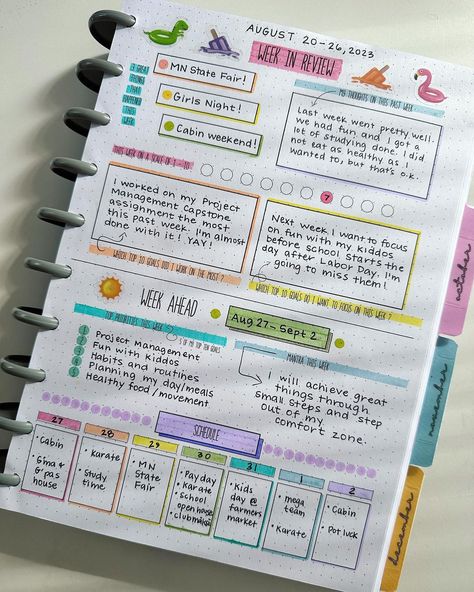 AUGUST 20-26, 2023
WEEK IN REVIEW
3 GREAT
THINGS
THAT
HAPPENED
THIS
WEEK
MN State Fair!
Girls Night!
Cabin weekend!
MY THOUGHTS ON THIS PAST WEEK
Last week went pretty well.
We had fun and I got a
lot of studying done. I did
not eat as healthy as I
wanted to, but that's o.k.
THIS WEEK ON A SCALE OF 1-10
7
I worked on my Project
Management Capstone
assignment the most
this past week. I'm almost
done with it! YAY!
WHICH TOP 10 GOALS DID I WORK ON THE MOST?
Next week I want to focus
on fun with my kiddos
before school starts the
day after Labor Day. I'm
going to miss them!
WHICH TOP 10 GOALS DO I WANT TO FOCUS ON THIS WEEK?
WEEK AHEAD
Aug 27-Sept 2
TOP PRIORITIES THIS WEEK
5 OF MY TOP TEN GOALS
Project Management
Fun with kiddos
Habits and routines
Planning my day/meals
Healthy food/movement
MANTRA THIS WEEK
I will achieve great
things through
small steps and step
out of my
comfort zone.
SCHEDULE
27
• Cabin
• Gma &
G'pas
house
28
• Karate
• Study
time
29
• MN
State
Fair
30
• Pay day
• Karate
• School
open house
31
• Kids
day @
farmers
market
1
• mega
team
• Karate
2
• Cabin
• Pot luck
october
november
december